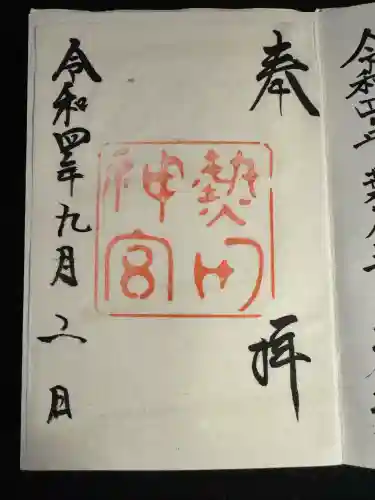 奉拝
熱田
神宮
令和四年九月二日